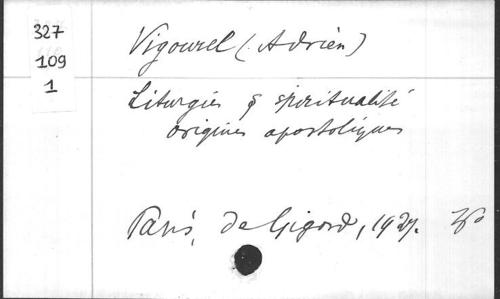 327
109
1
Vigourel (Adrien)
Liturgies & spiritualité
origines apostoliques
Paris, de Gigord, 1927.